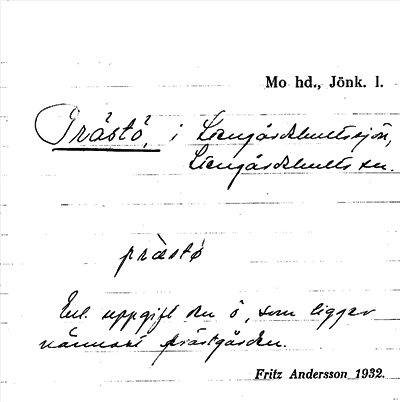 Mo hd., Jönk. l.
Prästö, i Stengårdshultssjön,
Stengårdshults sn.
prästø
Enl. uppgift den ö, som ligger
närmast prästgården.
Fritz Andersson 1932.